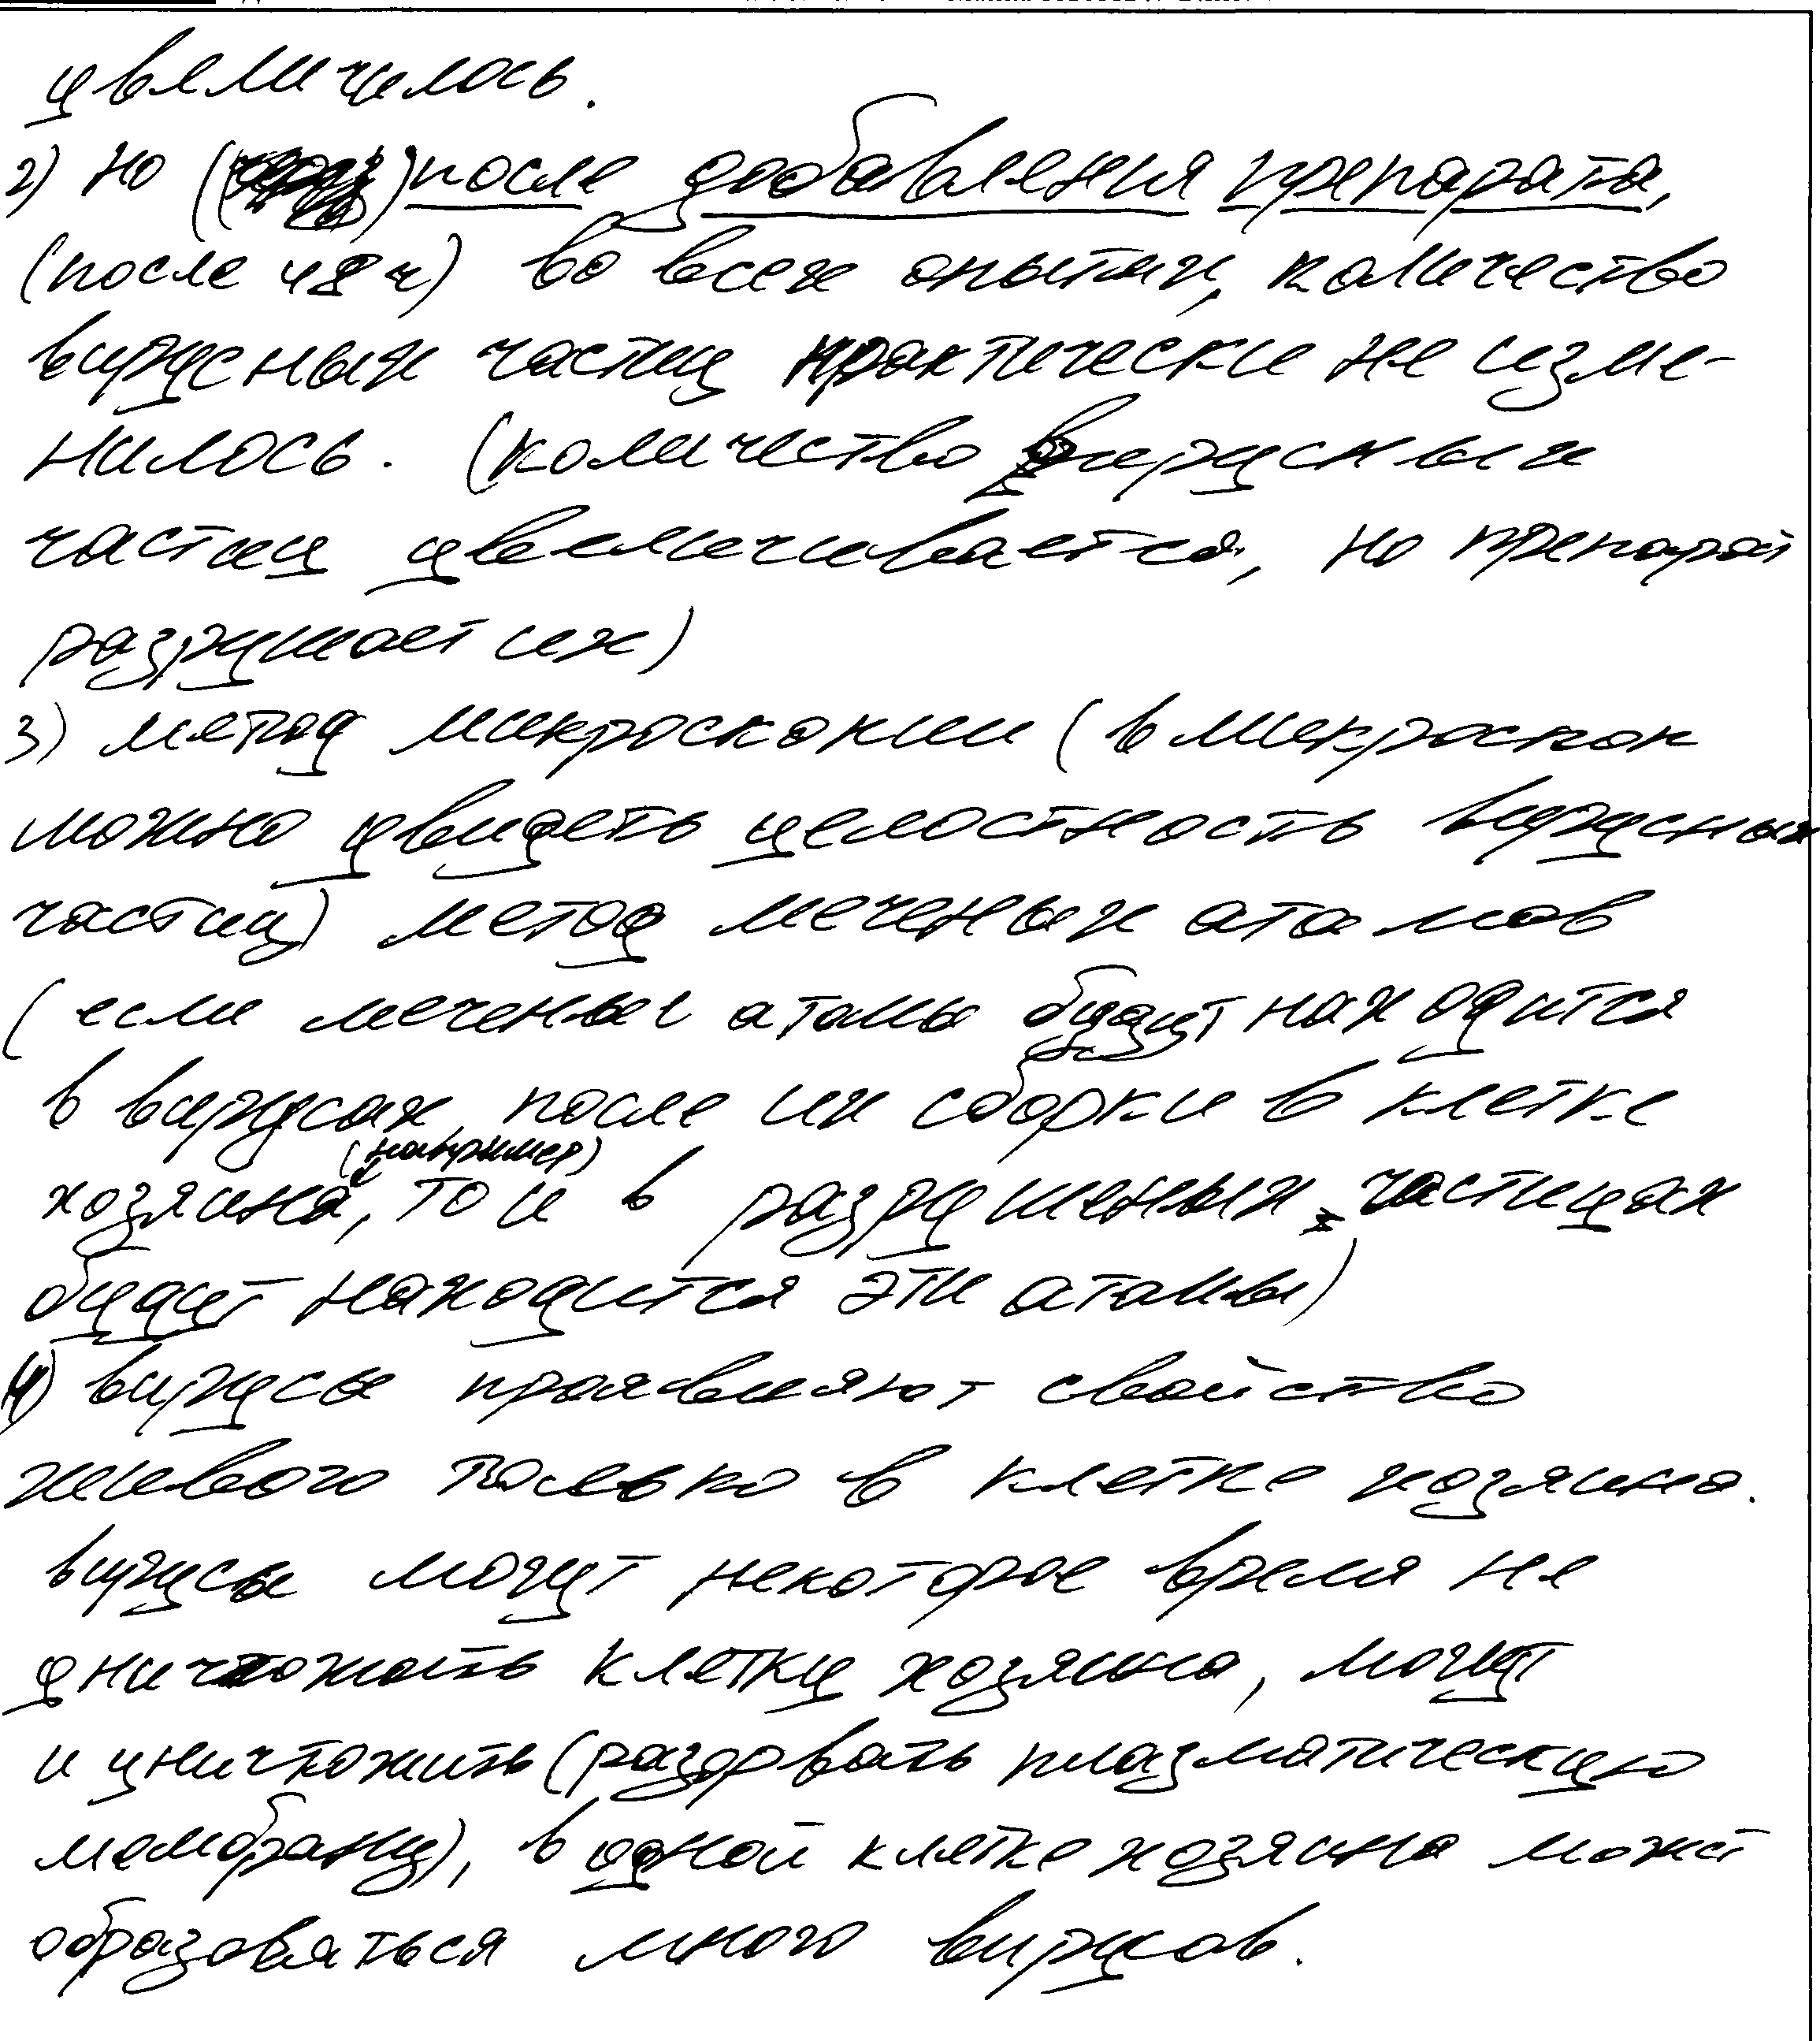 увеличилось.
2) но после добавления препарата,
(после 48 ч) во всех опытах, количество
вирусных частиц практически не изме-
нилось. (количество вирусных
частиц увеличивается, но препарат
разрушает их)
3) метод микроскопии (в микроскоп
можно увидеть целостность вирусных
частиц) метод меченых атомов
(если меченые атомы будут находится
в вирусах после их сборки в клетке
(например)
хозяина, то и в разрушеных частицах
будут находится эти атомы)
4) вирусы проявляют свойство
живого только в клетке хозяина.
вирусы могут некоторое время не
уничтожать клетку хозяина, могут
и уничтожить (разорвать плазматическую
мембрану), в одной клетке хозяина может
образоваться много вирусов.